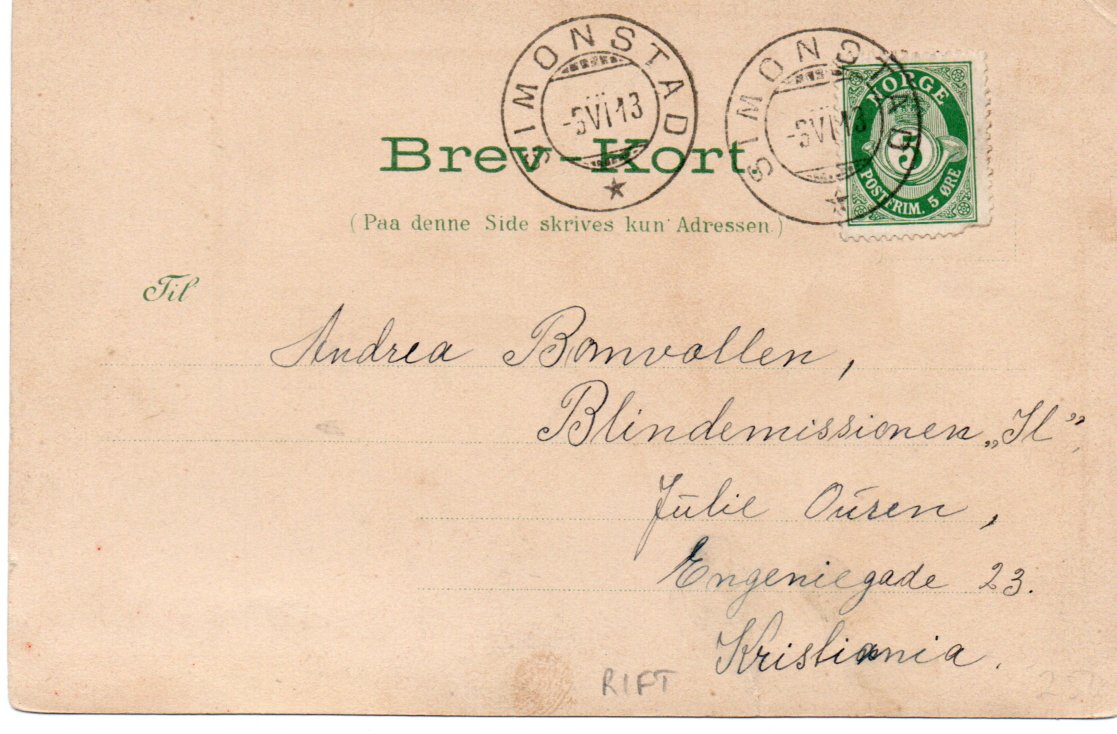 SIMONSTAD
-6VI13
SIMONSTAD
-6VI13
NORGE
5
POSTFRIM. 5 ØRE
Brev-Kort
(Paa denne Side skrives kun Adressen)
Til
Andrea Bomvollen,
Blindemissionen „Il”
Julie Ousen,
Engeniegade 23.
Kristiania.
RIFT